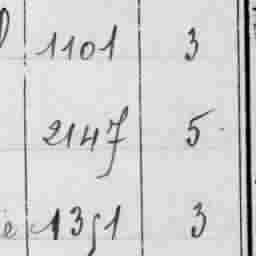 1101 3
2147 5
1351 3